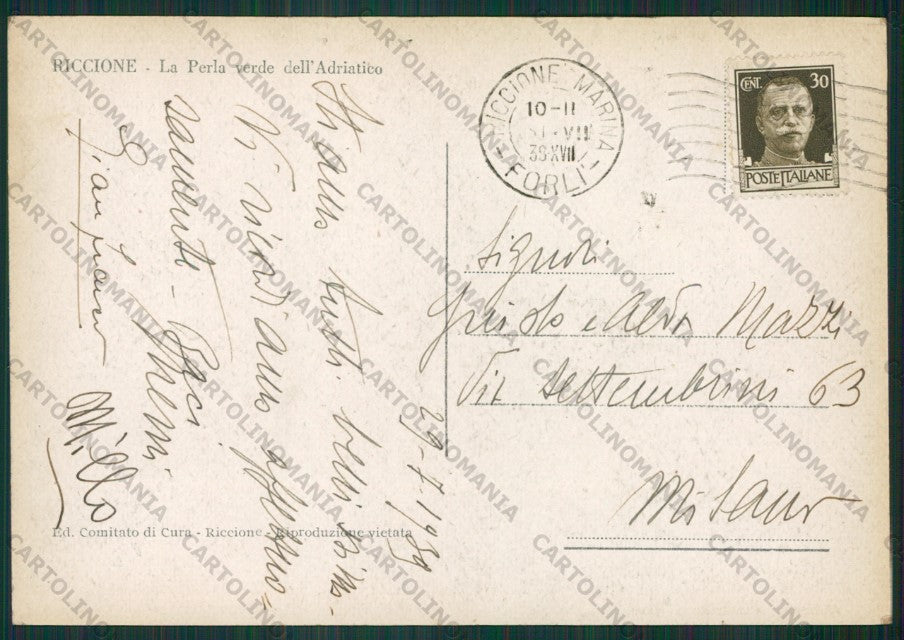 RICCIONE - La Perla verde dell'Adriatico
RICCIONE MARINA
10-11
31·VII
39 XVII
- FORLI -
CENT. 30
POSTE ITALIANE
29-7-1939
Stiamo tutti benissimo-
Vi ricordiamo affettuo=
samente - Baci
Gianfranco
Millo
Signori
Guido e Aldo Mazzi
Via Settembrini 63
Milano
Ed. Comitato di Cura - Riccione - Riproduzione vietata
CARTOLINOMANIA